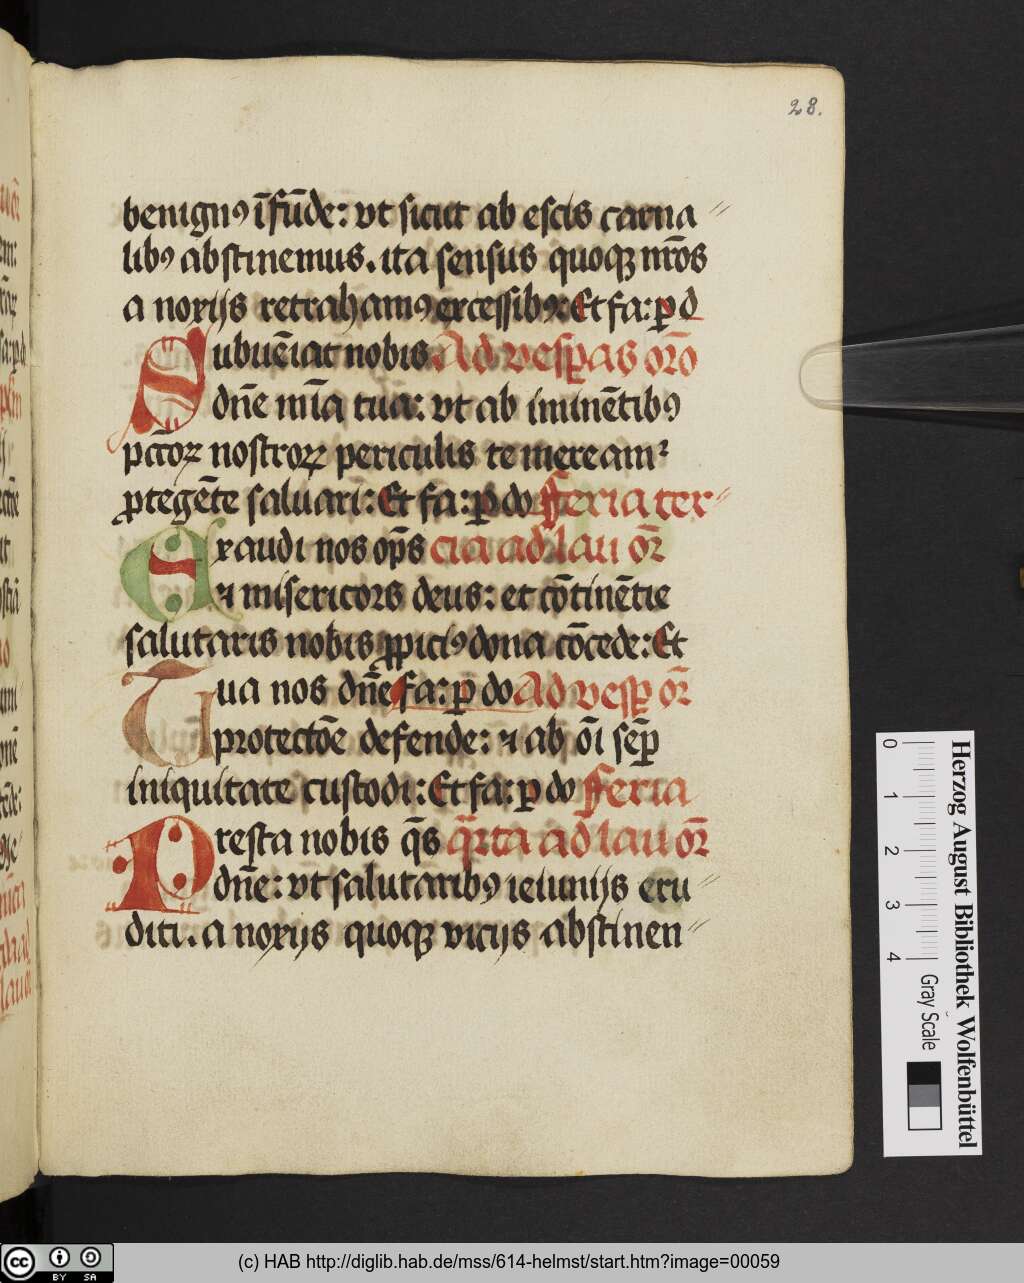 28.
benignꝰ īfūde: vt sicut ab escis carna〃
libꝰ abstinemus. ita sensus quoqꝫ nr̄os
a noxijs retrahamꝰ excessibꝰ: Et fa: p̱ d̄
Subuēiat nobis Ad vesꝑas or̄o
dn̄e mīa tua: vt ab iminētibꝰ
pc̄toꝝ nostroꝝ periculis te mereamᷣ
ꝓtegēte saluari: Et fa: p̱ do Feria ter〃
Exaudi nos op̄s cia ad lau or̄
⁊ misericors deus: et cōtinētie
salutaris nobis ꝓpiciꝰ dona cōcede: Et
Tua nos dn̄e fa: p̱ do Ad vesꝑ or̄
protectōe defende: ⁊ ab ōi sēꝑ
iniquitate custodi: Et fa: p̱ do Feria
Presta nobis q̄s q̄rta ad lau or̄
dn̄e: vt salutaribꝰ ieiunijs eru〃
diti. a noxijs quoqꝫ vicijs abstinen〃
0 1 2 3 4
Gray Scale
Herzog August Bibliothek Wolfenbüttel
cc BY SA
(c) HAB http://diglib.hab.de/mss/614-helmst/start.htm?image=00059